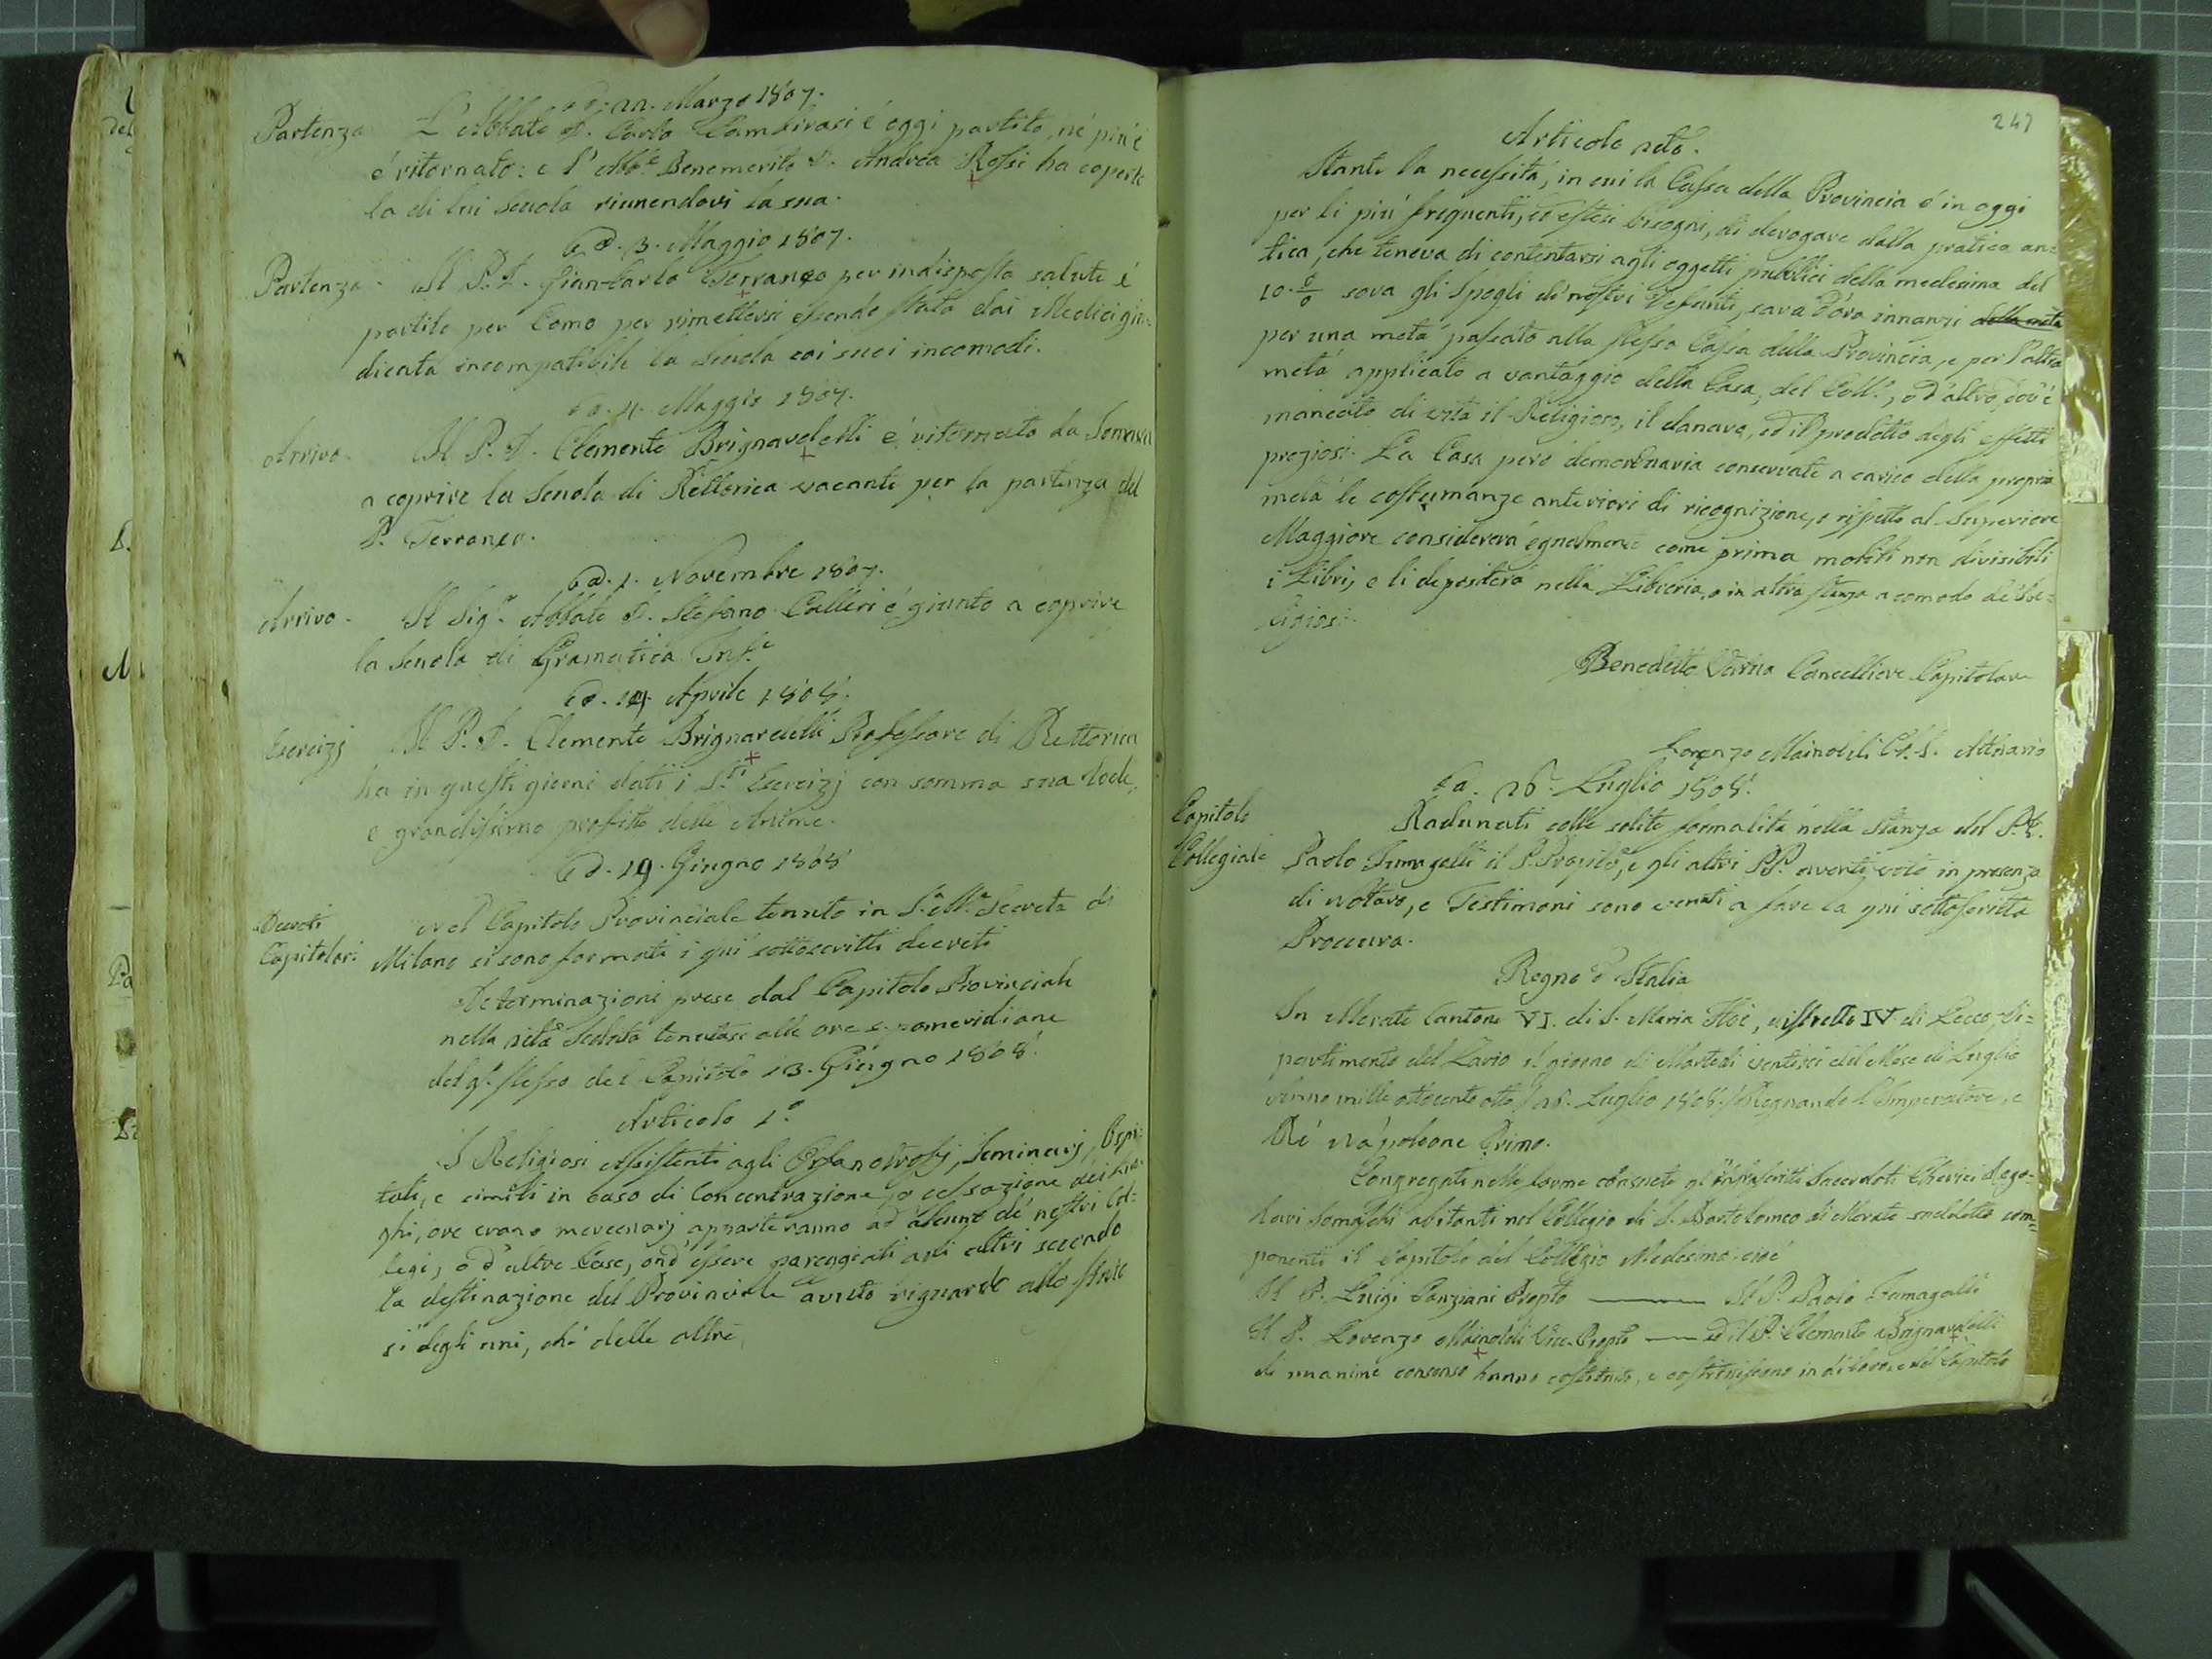 a dì 22. Marzo 1807.
Partenza L'Abbate D. Carlo Cambirasi é oggi partito, né piu' é
é ritornato: e l'Abb.e Benemerito D. Andrea Rossi ha coperta
la di lui Scuola riunendovi la sua.
a d. 3. Maggio 1807.
Partenza. Il P. D. Gian-Carlo Terraneo per indisposta salute é
partito per Como per rimettersi essendo stata dai Medici giu=
dicata incompatibile la Scuola coi suoi incomodi.
a d. 4. Maggio 1807.
Arrivo. Il P. D. Clemente Brignardelli é ritornato da Somasca
a coprire la Scuola di Rettorica vacante per la partenza del
P. Terraneo.
a d. 1. Novembre 1807.
Arrivo. Il Sig.r Abbate D. Stefano Calleri é giunto a coprire
la Scuola di Gramatica Inf.e
a d. 14. Aprile 1808.
Esercizj Il P. D. Clemente Brignardelli Professore di Rettorica
ha in questi giorni dati i S.ti Esercizj con somma sua lode,
e grandissimo profitto delle Anime.
a d. 19. Giugno 1808
Decreti Nel Capitolo Provinciale tenuto in S.a M.a Secreta di
Capitolari Milano si sono formati i quì sottoscritti decreti
Determinazioni prese dal Capitolo Provinciale
nella Sessione tenutasi alle ore pomeridiane
del g.o stesso del Capitolo 13. Giugno 1808.
Articolo 1.o
I Religiosi Assistenti agli Orfanotrofj, Seminarj, Ospi=
tali, e simili in caso di Concentrazione, o cessazione dei luo=
ghi, ove erano mercenarj apparteranno ad alcuno de' nostri Col=
legi, o d'altre Case, ond'essere pareggiati agli altri secondo
la destinazione del Provinciale avuto riguardo allo stato
sì degli uni, che delle altre
247
Articolo
Stante la necessitá, in cui la Cassa della Provincia é in oggi
per li piú frequenti, ed estesi bisogni, di derogare dalla pratica an=
tica, che teneva di contentarsi agli oggetti pubblici della medesima del
10. o/o sovra gli Spogli de' nostri Defunti, sara d'ora innanzi della metà
per una metá passato alla stessa Cassa della Provincia, e per l'altra
metá applicato a vantaggio della Casa, del Coll.o, o d'altro, dov'é
mancato di vita il Religioso, il danaro, ed il prodotto degli effetti
preziosi. La Casa peró conservate a carico della propria
metá le costumanze anteriori di ricognizione, e rispetto al Superiore
Maggiore considererá egualmente come prima mobili non divisibili
i Libri, e li depositerá nella Libreria, o in altra stanza a comodo de' Re=
ligiosi.
Benedetto Cancelliere Capitolare
Lorenzo Mainoldi C. R. S. Attuario
a d. 26. Luglio 1808.
Capitolo Radunati colle solite formalitá nella Stanza del P. D.
Collegiale Paolo Fumagalli il P. Preposito, e gli altri PP. aventi voto in presenza
di Notaro, e Testimoni sono venuti a fare la quì sottoscritta
Procura.
Regno d'Italia
In Merate Cantone VI. di S. Maria Hoé, distretto IV di Lecco, Di=
partimento del Lario il giorno di Martedì ventisei del Mese di Luglio
Anno mille ottocento otto /26. Luglio 1808./ Regnando l'Imperatore, e
Ré Napoleone Primo.
Congregati nelle forme consuete gl'infrascritti Sacerdoti Cherici Rego=
lari Somaschi abitanti nel Collegio di S. Bartolomeo di Merate suddetto com=
ponenti il Capitolo del Collegio Medesimo cioé
Il P. Luigi Ponziani Prepto ——— Il P. Paolo Fumagalli
Il P. Lorenzo Mainoldi Vice-Prepto —— ed il P. Clemente Brignardelli
di unanime consenso hanno costituito, e costituiscono in di loro, e del Capitolo